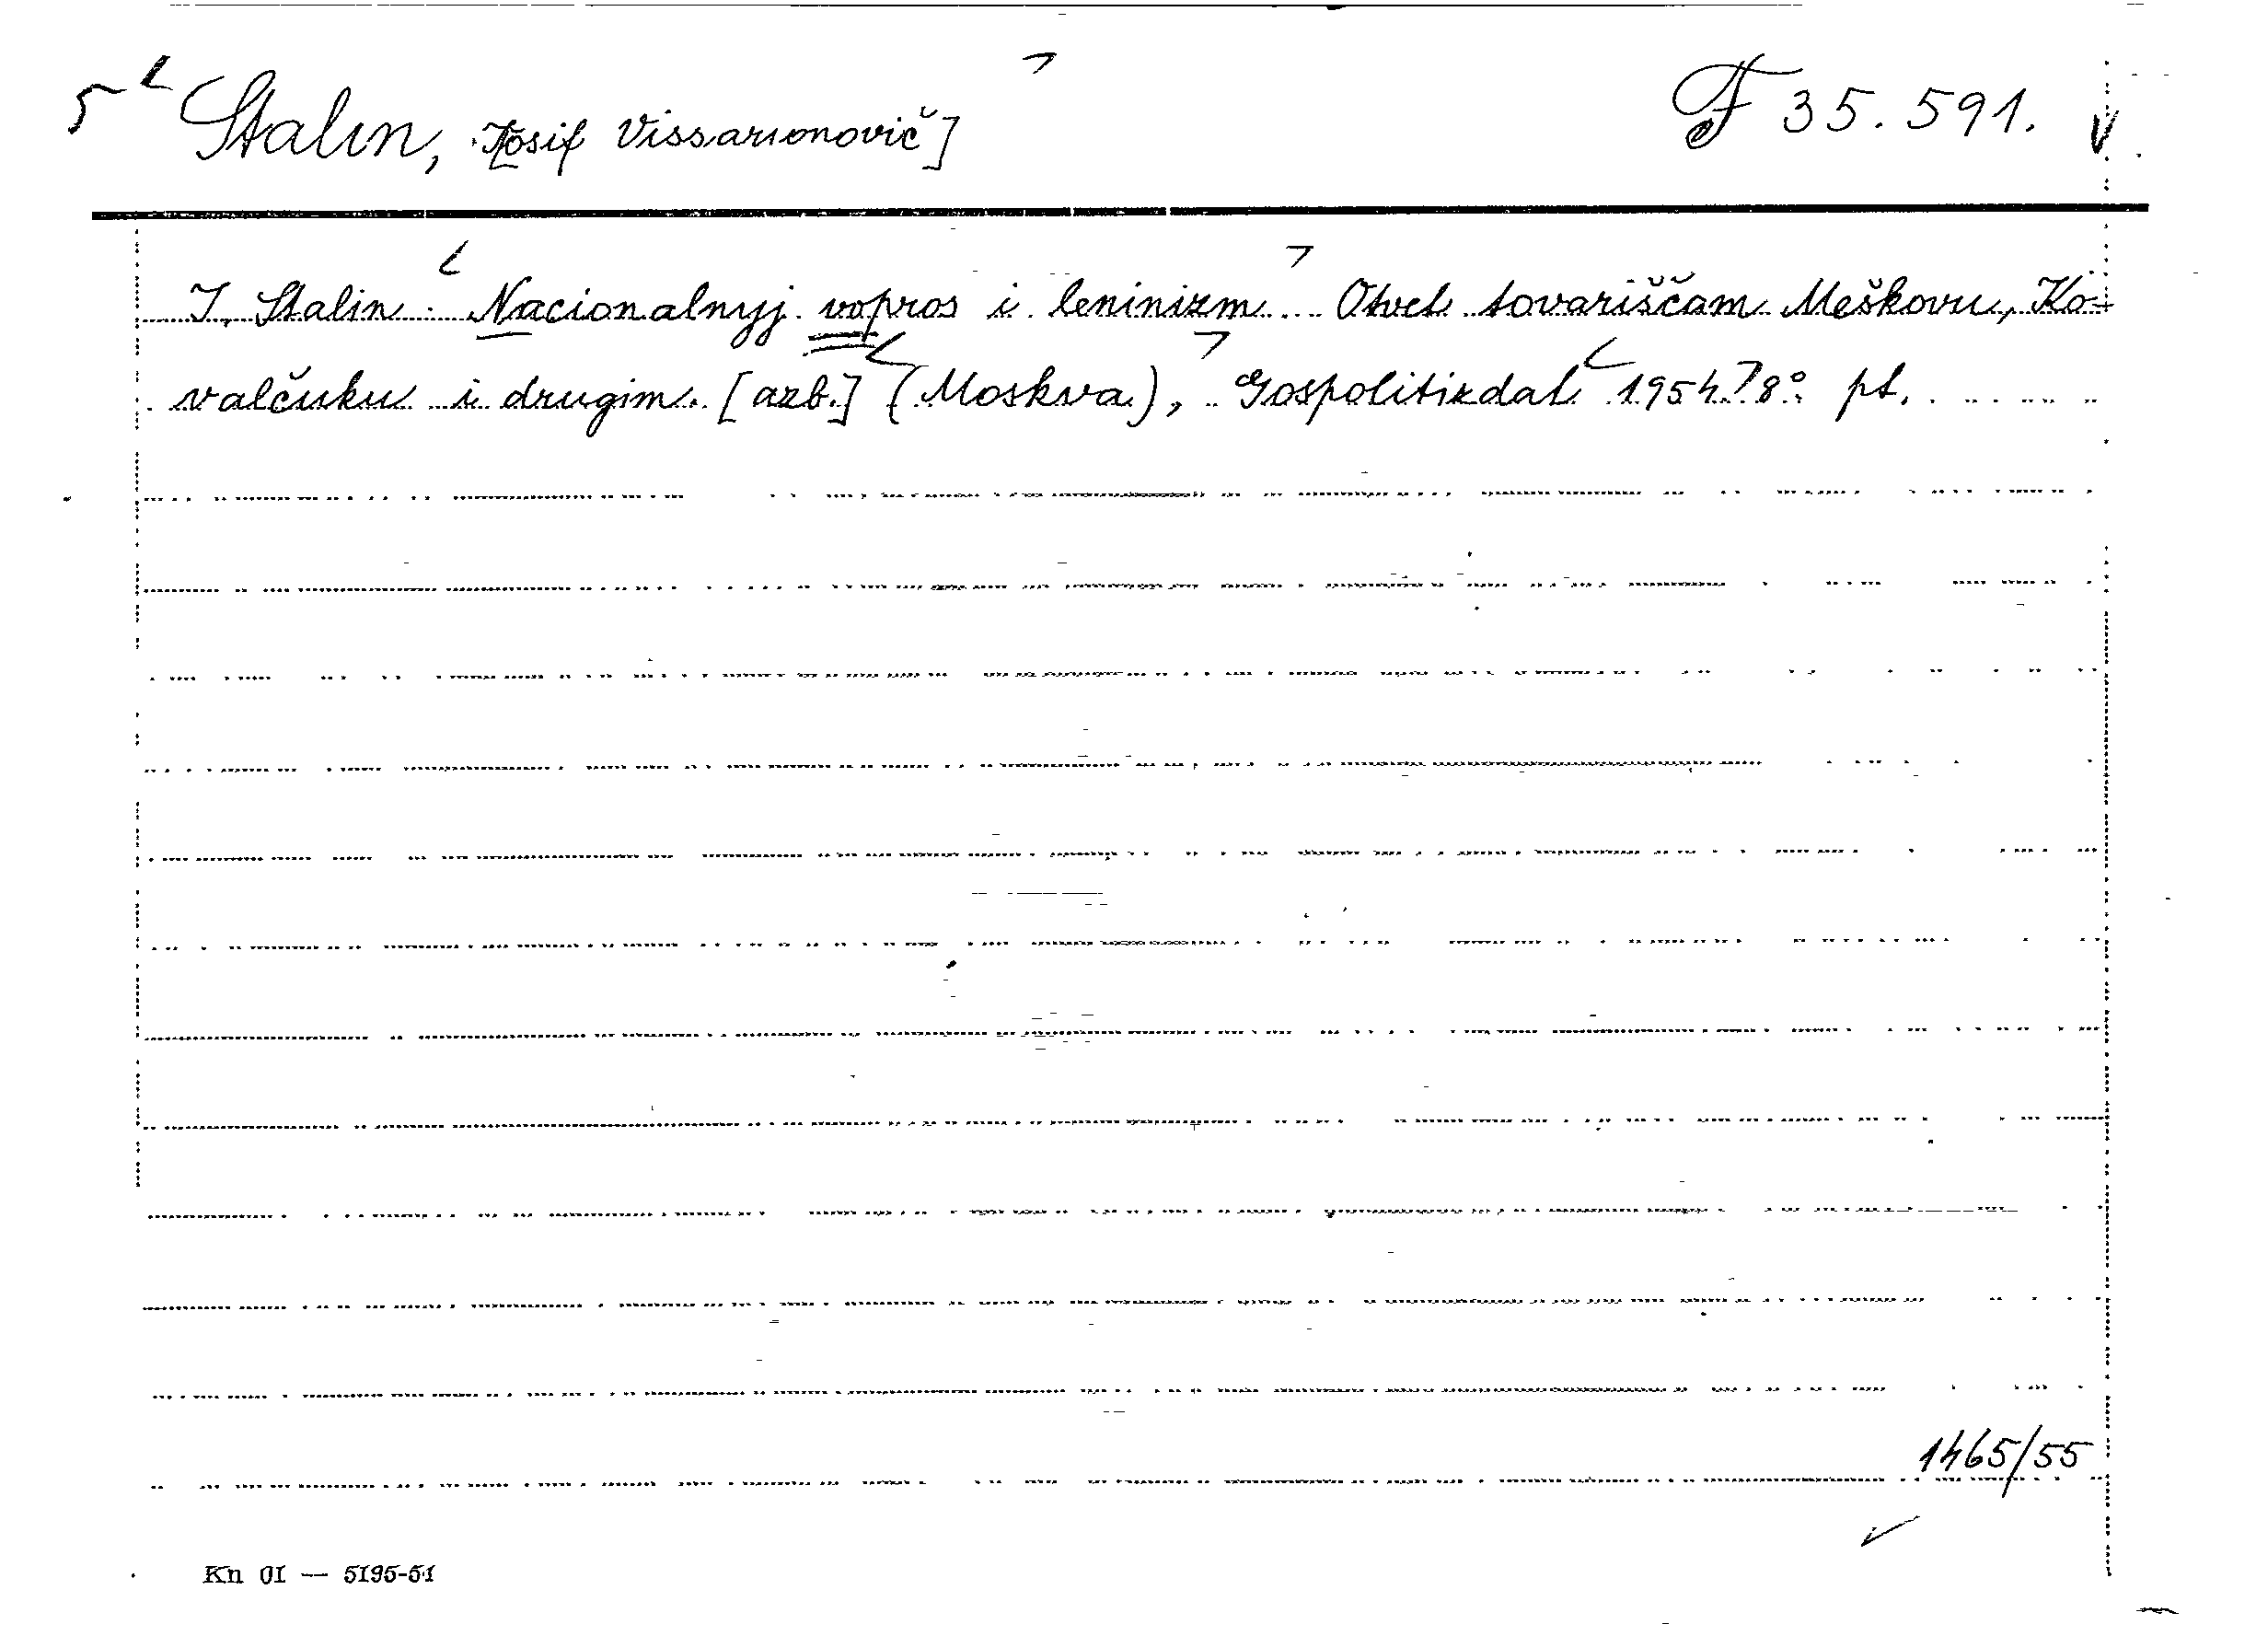 Stalin, [Iosif Vissarionovič] F 35.591.
I. Stalin: Nacionalnyj vopros i leninizm. Otvet tovariščam Meškovu, Ko-
valčuku i drugim. [azb.] (Moskva), Gospolitizdat 1954. 8° pt.
1465/55
Kn 01 — 5195-51